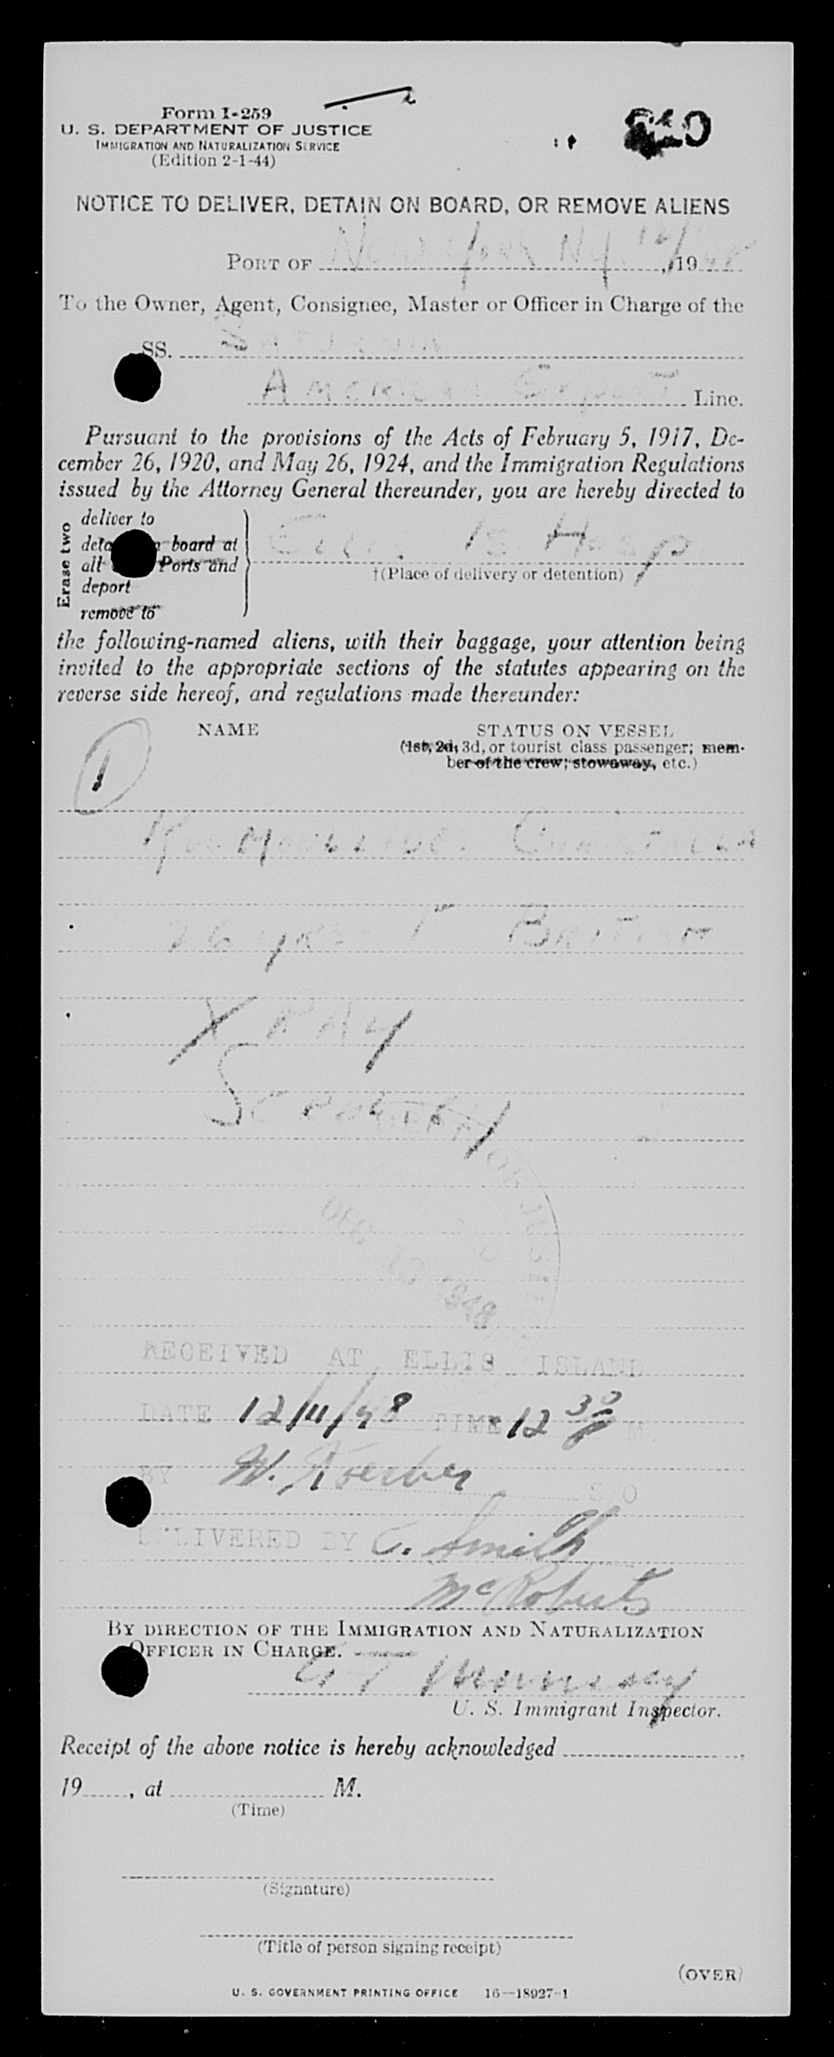 Form I-259
U. S. DEPARTMENT OF JUSTICE
IMMIGRATION AND NATURALIZATION SERVICE
(Edition 2-1-44)
NOTICE TO DELIVER, DETAIN ON BOARD, OR REMOVE ALIENS
PORT OF New York N.Y. , 19
To the Owner, Agent, Consignee, Master or Officer in Charge of the
SS.
American Export Line.
Pursuant to the provisions of the Acts of February 5, 1917, De-
cember 26, 1920, and May 26, 1924, and the Immigration Regulations
issued by the Attorney General thereunder, you are hereby directed to
Erase two
deliver to
board at
all Ports and
deport
remove to
Ellis Is Hosp
†(Place of delivery or detention)
the following-named aliens, with their baggage, your attention being
invited to the appropriate sections of the statutes appearing on the
reverse side hereof, and regulations made thereunder:
NAME
STATUS ON VESSEL
(1st, 2d, 3d, or tourist class passenger; mem-
ber of the crew; stowaway, etc.)
1
26 yrs F British
X Ray
DEC 1948
RECEIVED AT ELLIS ISLAND
DATE 12/11/48 TIME 12 30 P M
BY W. Koerber S O
DELIVERED BY C. Smith
McRoberts
BY DIRECTION OF THE IMMIGRATION AND NATURALIZATION
OFFICER IN CHARGE.
U. S. Immigrant Inspector.
Receipt of the above notice is hereby acknowledged ,
19 , at M.
(Time)
(Signature)
(Title of person signing receipt)
(OVER)
U. S. GOVERNMENT PRINTING OFFICE 16—18927-1